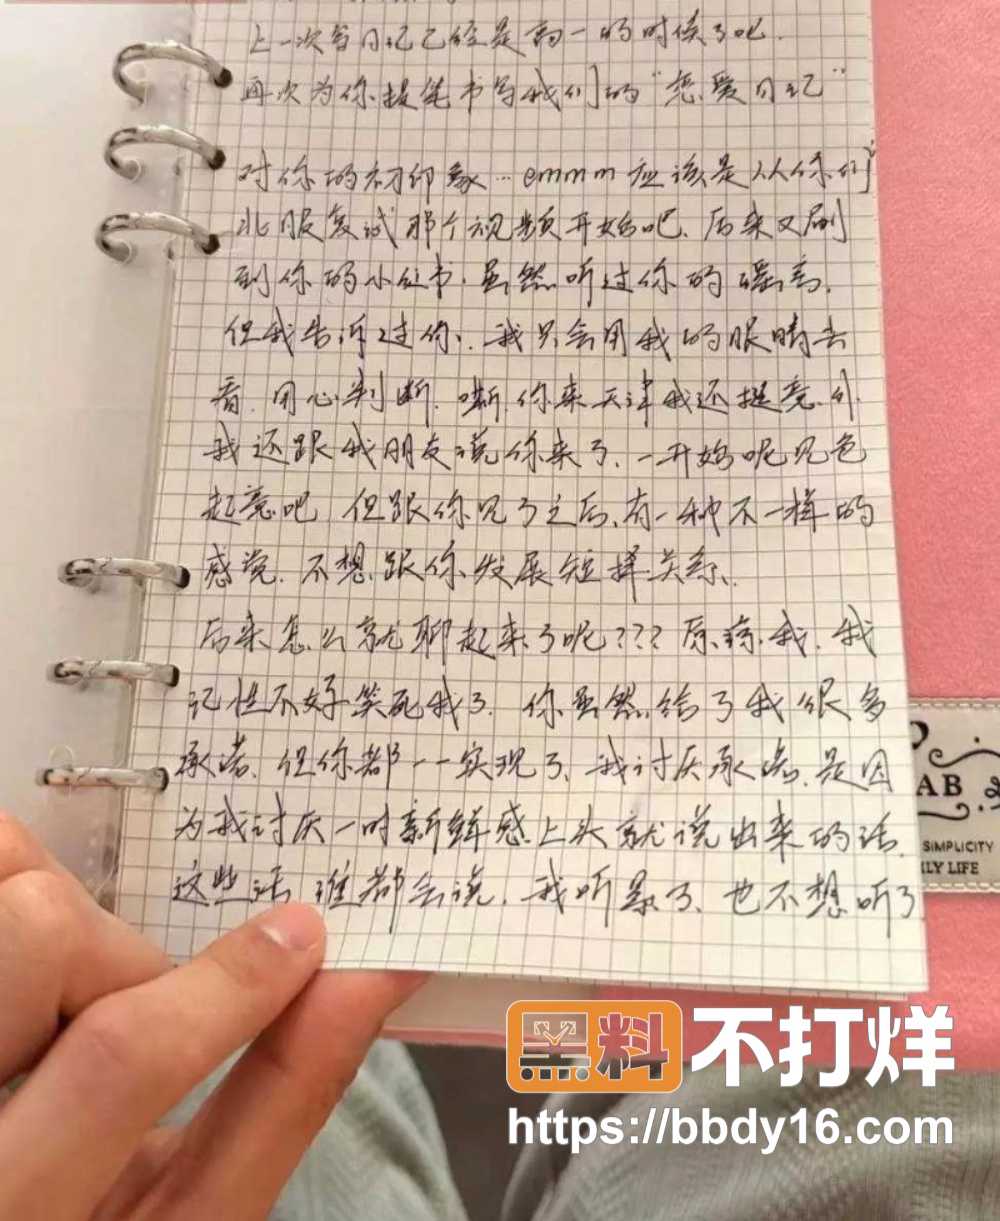 上一次写日记已经是高一的时候了吧.
再次为你提笔书写我们的“恋爱日记”
对你的初印象…emmm应该是从你们
北服复试那个视频开始吧、后来又刷
到你的小红书.虽然听过你的
但我告诉过你、我只会用我的眼睛去
看.用心判断.嘶.你来天津我还挺意外.
我还跟我朋友说你来了、一开始呢见色
起意吧.但跟你见了之后、有一种不一样的
感觉.不想跟你发展短择关系、
后来怎么就聊起来了呢???原谅我.我
记性不好笑死我了.你虽然给了我很多
承诺、但你都一一实现了、我讨厌承诺.是因
为我讨厌一时新鲜感上头就说出来的话.
这些话谁都会说.我听累了、也不想听了
AB
SIMPLICITY
LY LIFE
黑料不打烊
https://bbdy16.com